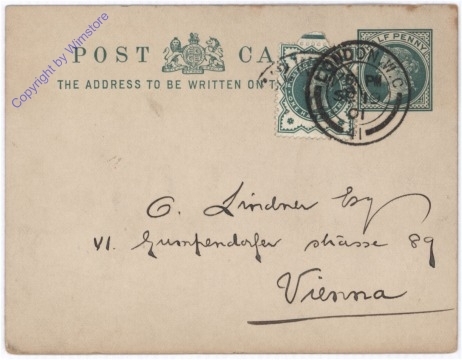 Copyright by Winstore
POST CA
LF PENNY
THE ADDRESS TO BE WRITTEN ON T
LONDON.W.C
01
41
C. Lindner Esq
VI. Gumpendorfer strasse 89
Vienna